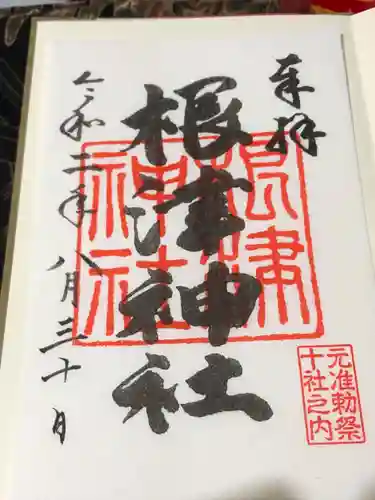 奉拝
根津神社
根津
神社
令和二年八月三十日
元准勅祭
十社之内